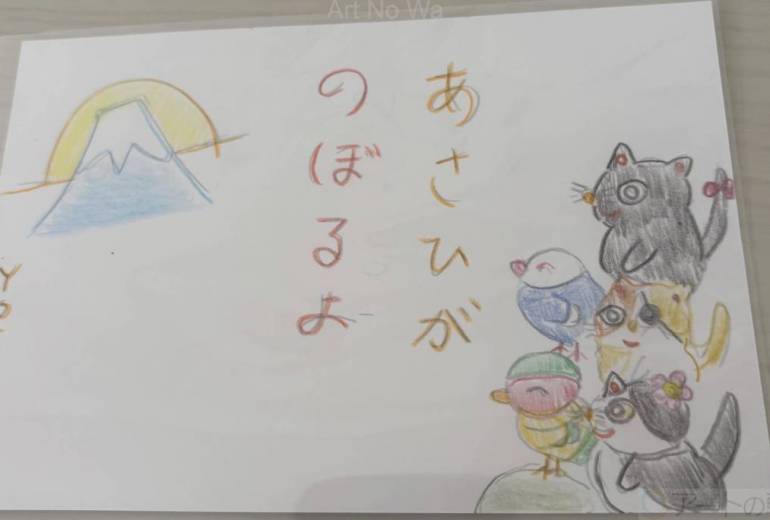 Art No Wa
あさひが
のぼるよ
アートの